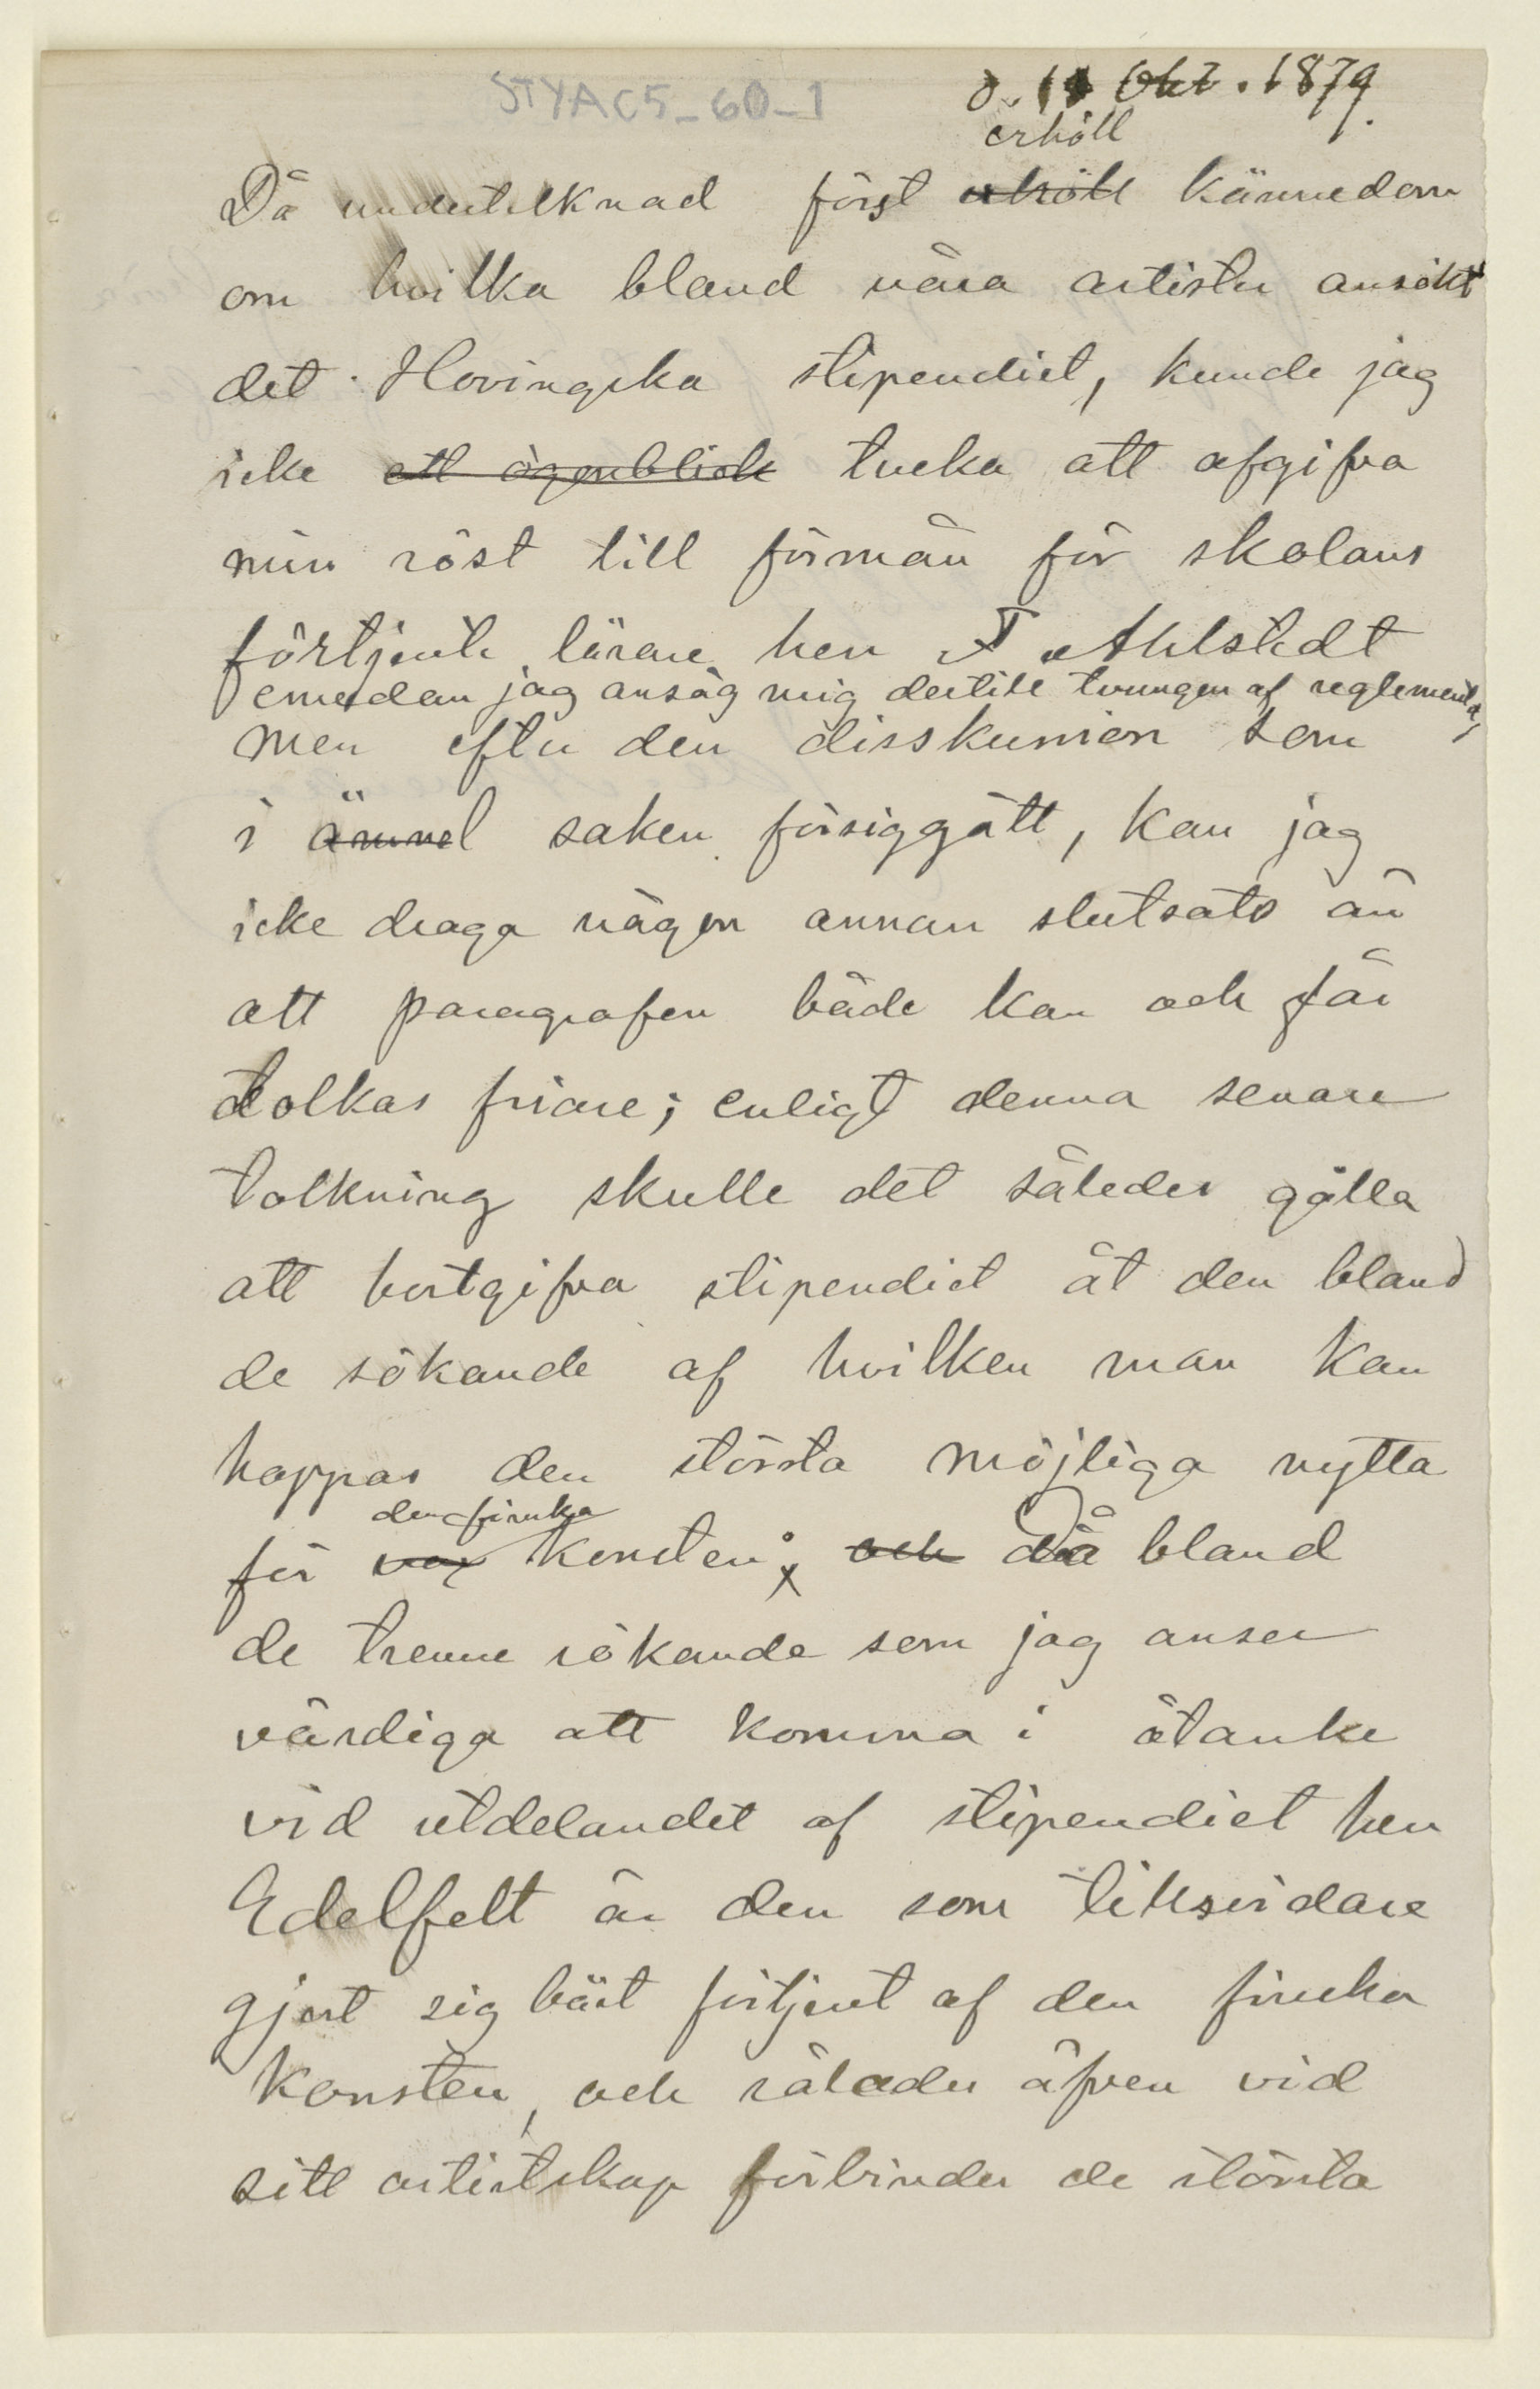 STYAC5_60_1
d. 14 Okt. 1879.
erhöll
Då undertecknad först erhöll kännedom
om hvilka bland våra artister ansökt
det Hovingska stipendiet, kunde jag
icke ett ögonblick tveka att afgifva
min röst till förmån för skolans
förtjente lärare herr F Ahlstedt
emedan jag ansåg mig dertill tvungen af reglementet,
Men efter den disskussion som
i ämnet saken försiggått, kan jag
icke draga någon annan slutsats än
att paragrafen både kan och får
tolkas friare; enligt denna senare
tolkning skulle det således gälla
att bortgifva stipendiet åt den bland
de sökande af hvilken man kan
hoppas den största möjliga nytta
den finska
för konsten; och Då bland
de trenne sökande som jag anser
värdiga att komma i åtanke
vid utdelandet af stipendiet herr
Edelfelt är den som tillsvidare
gjort sig bäst förtjent af den finska
konsten, och således äfven vid
sitt artistskap förbinder de största